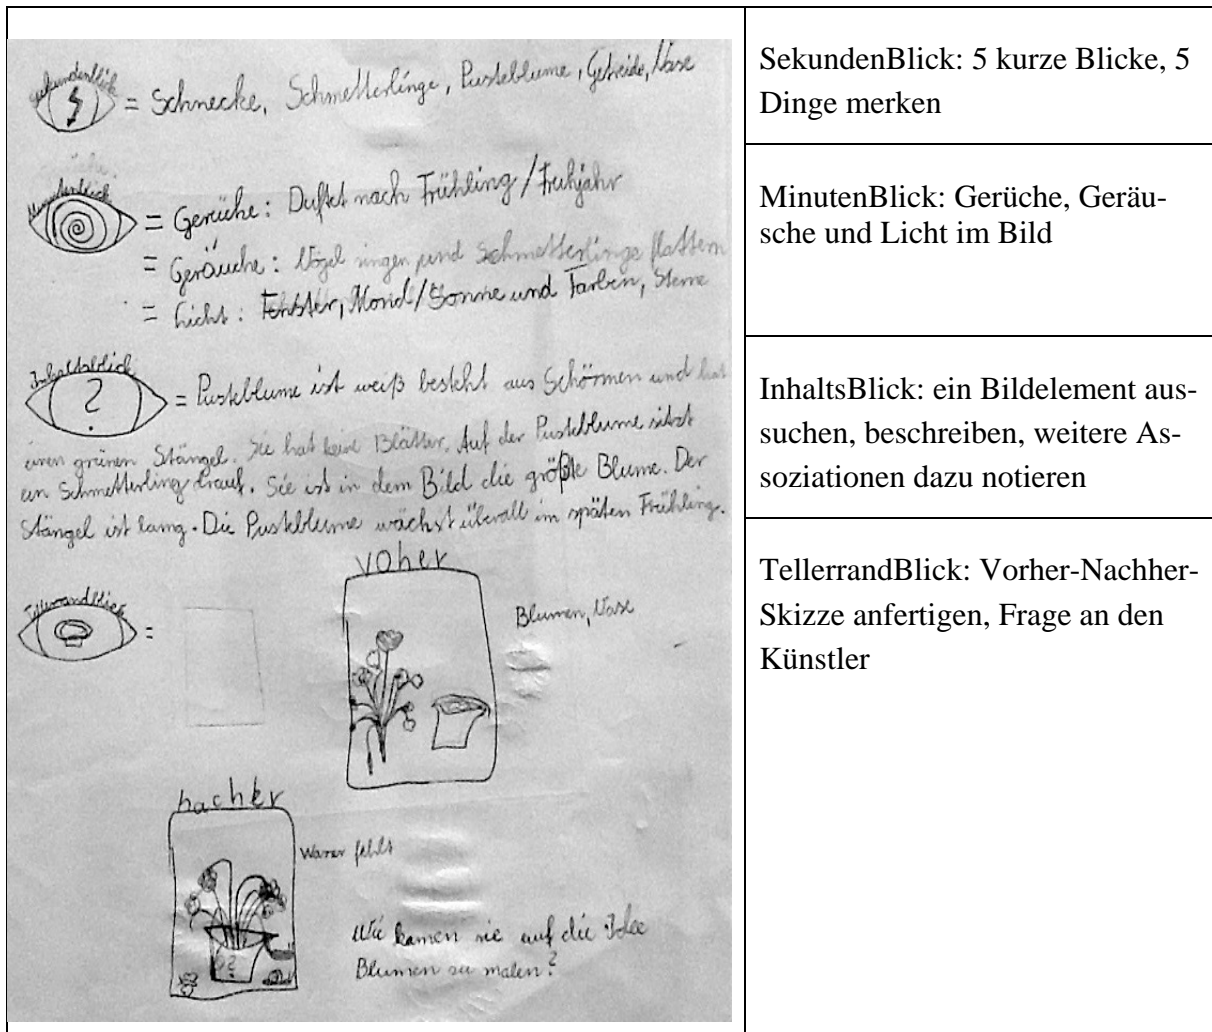 Sekundenblick
= Schnecke, Schmetterlinge, Pusteblume, Getreide, Vase
Minutenblick
= Gerüche: Duftet nach Frühling / Fruhjahr
= Geräuche: Vögel singen und Schmetterlinge flattern
= Licht: Fenster, Mond/Sonne und Farben, Sterne
Inhaltsblick
?
= Pusteblume ist weiß besteht aus Schörmen und hat
einen grünen Stängel. Sie hat keine Blätter. Auf der Pusteblume sitzt
ein Schmetterling drauf. Sie ist in dem Bild die größte Blume. Der
Stängel ist lang. Die Pusteblume wächst überall im späten Frühling.
Tellerrandblick
=
voher
Blumen, Vase
nachher
fehlt
Wie kamen sie auf die Idee
Blumen zu malen?
SekundenBlick: 5 kurze Blicke, 5
Dinge merken
MinutenBlick: Gerüche, Geräu-
sche und Licht im Bild
InhaltsBlick: ein Bildelement aus-
suchen, beschreiben, weitere As-
soziationen dazu notieren
TellerrandBlick: Vorher-Nachher-
Skizze anfertigen, Frage an den
Künstler